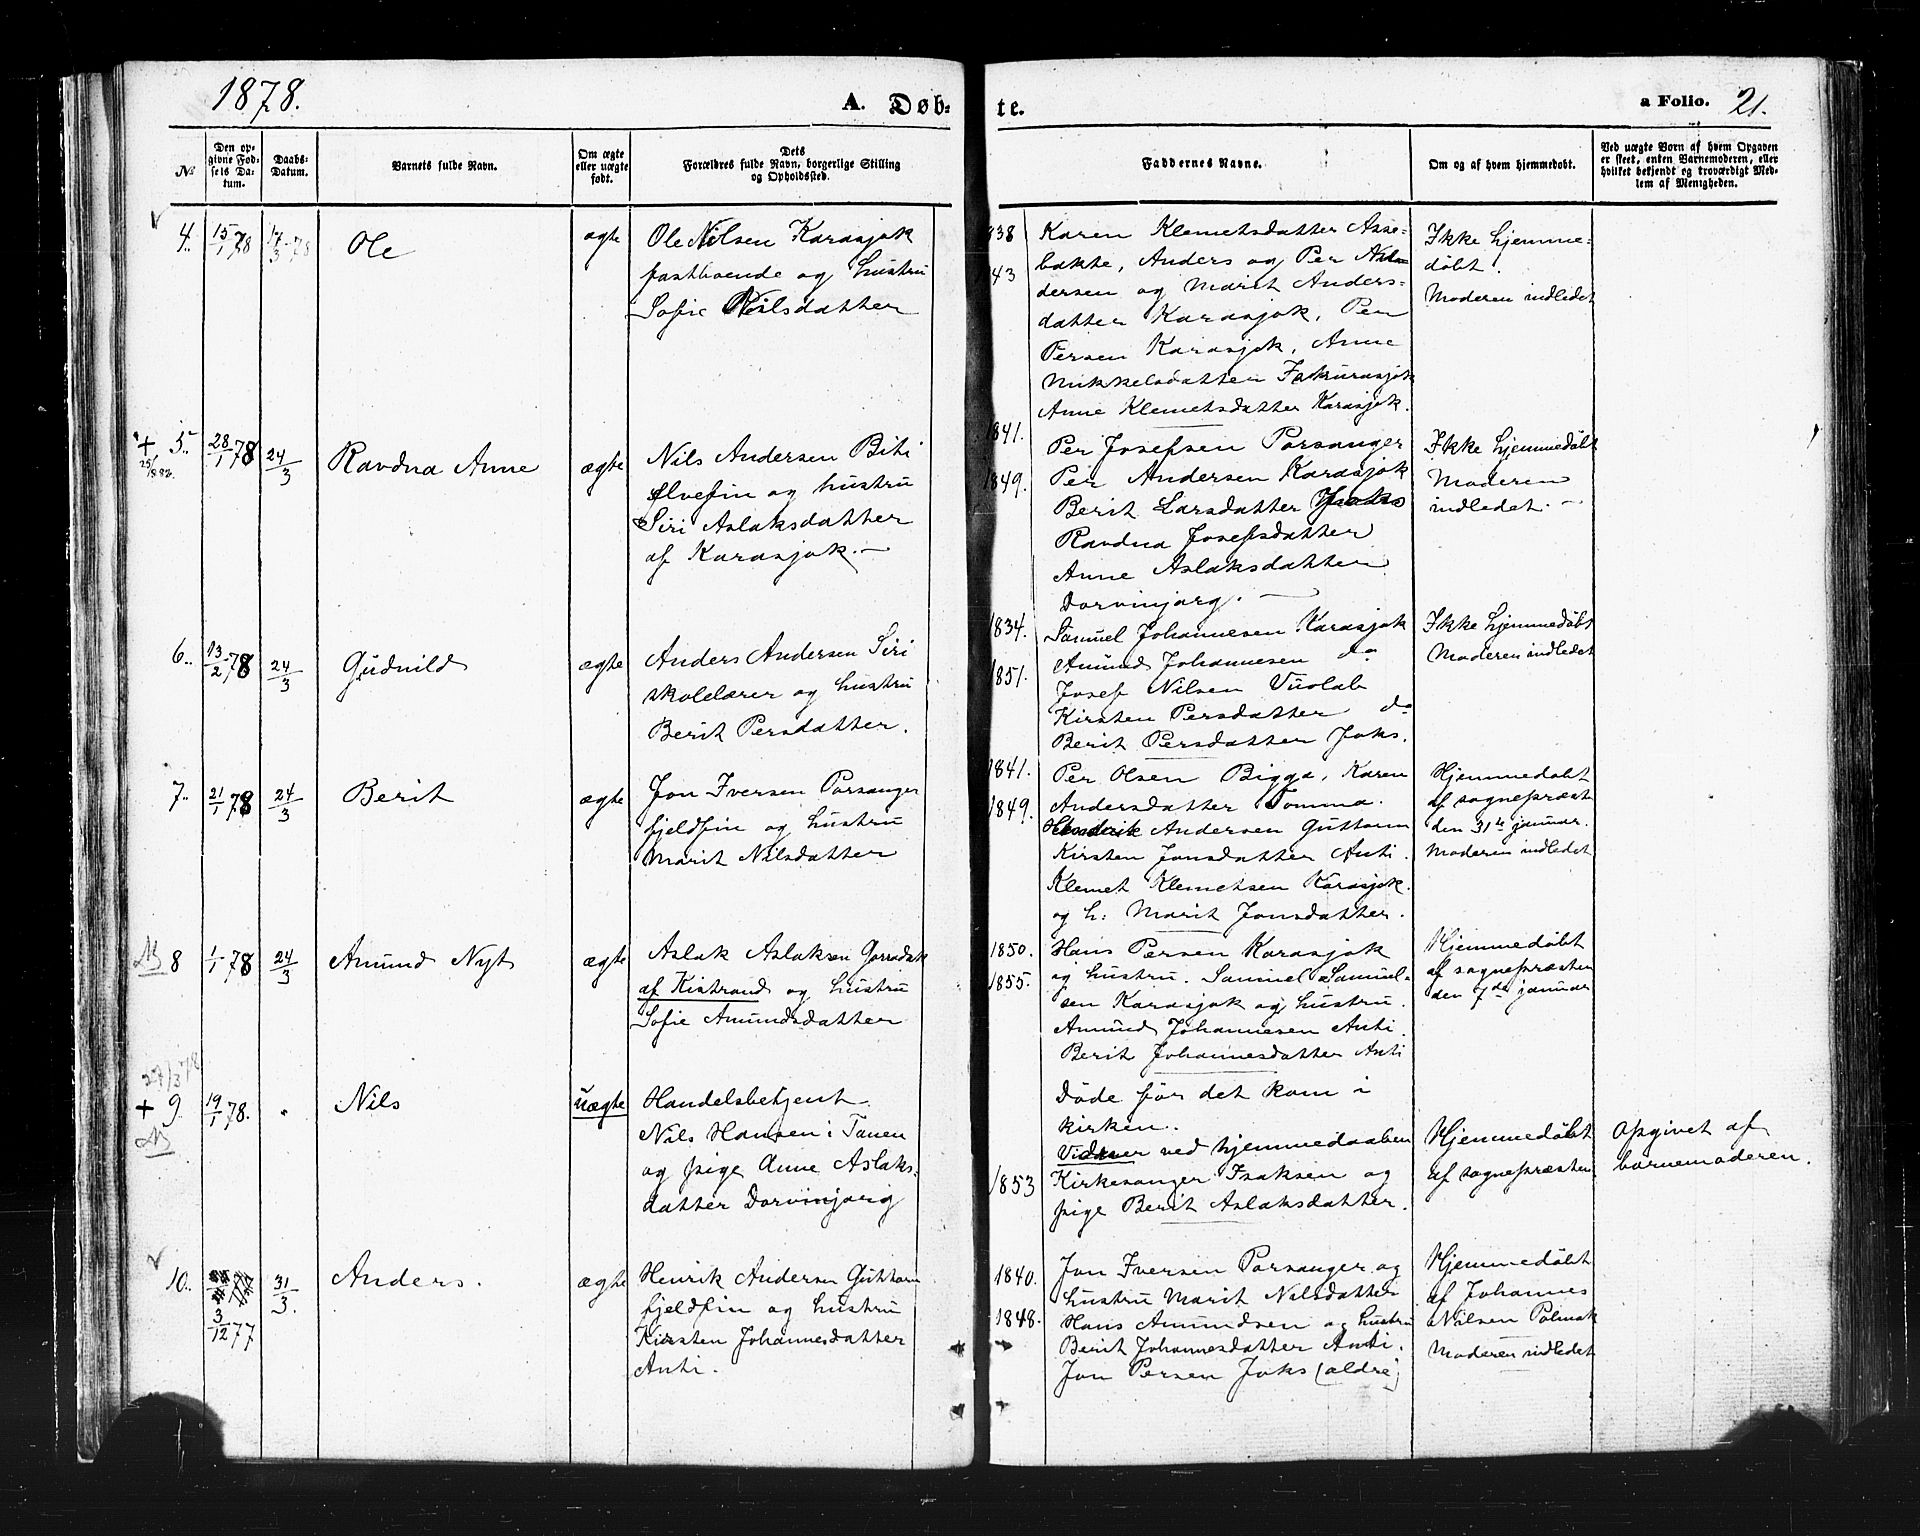 1878.
A. Døb-
te.
a Folio. 21.
No
Den op-
givne Fød-
sels Da-
tum.
Daabs-
Datum.
Barnets fulde Navn.
Om ægte
eller uægte
født.
Dets
Forældres fulde Navn, borgerlige Stilling
og Opholdssted.
Faddernes Navne.
Om og af hvem hjemmedøbt.
Ved uægte Børn af hvem Opgaven
er skeet, enten Barnemoderen, eller
hvilket bekjendt og troværdigt Med-
lem af Menigheden.
4. 15/1 78 17/3 78 Ole ægte
Ole Nilsen Karasjok
fastboende og hustru
Sofie Nilsdatter
838
43
Karen Klemetsdatter Asse-
bakte, Anders og Per
dersen og Marit Anders-
datter Karasjok, Per
Persen Karasjok, Anne
Mikkelsdatter
Anne Klemetsdatter Karasjok.
Ikke hjemme-
døbt.
Moderen indledet
+ 5. 28/1 78 24/3 Ravdna Anne ægte
Nils Andersen Biti
elvefin og hustru
Siri Aslaksdatter
af Karasjok.
1841.
1849.
Per Josefsen Porsanger
Per Andersen Karasjok
Berit Larsdatter
Ravdna Josefsdatter
Anne Aslaksdatter
Dorvinjarg.
Ikke hjemmedøbt
Moderen
indledet.
6. 13/2 78 24/3 Gudnild ægte
Anders Andersen Siri
skolelærer og hustru
Berit Persdatter.
1834.
1851.
Samuel Johannesen Karasjok
Amund Johannesen do
Josef Nilsen Vuolab
Kirsten Persdatter do
Berit Persdatter Joks.
Ikke hjemmedøbt
Moderen indledet
7. 21/1 78 24/3 Berit ægte
Jon Iversen Porsanger
fjeldfin og hustru
Marit Nilsdatter
1841.
1849.
Per Olsen Bigga, Karen
Andersdatter Somma.
Hendrik Andersen Guttorm
Kirsten Jonsdatter Anti.
Klemet Klemetsen Karasjok.
og h: Marit Jonsdatter.
Hjemmedøbt
af sognepræst
den 31te januar.
Moderen indledet
8 1/1 78 24/3 Amund Nyt ægte
Aslak Aslaksen
af Kistrand og hustru
Sofie Amundsdatter
1850.
1855.
Hans Persen Karasjok
og hustru. Samuel Samuel-
sen Karasjok og hustru.
Amund Johannesen Anti.
Berit Johannesdatter Anti
Hjemmedøbt
af sognepræsten
den 7de januar
27/3 78
+ 9. 19/1 78. Nils uægte
Handelsbetjent
Nils Hansen i Tanen
og pige Anne Aslaks-
datter Dorvinjarg
1853
Døde før det kom i
kirken.
Vidner ved hjemmedaaben
Kirkesanger Isaksen og
pige Berit Aslaksdatter.
Hjemmedøbt
af sognepræsten
Opgivet af
barnemoderen.
10. 3/12 77 31/3. Anders. ægte
Henrik Andersen Guttorm
fjeldfin og hustru
Kirsten Johannesdatter
Anti.
1840.
1848.
Jon Iversen Porsanger og
hustru Marit Nilsdatter
Hans Amundsen og hustru
Berit Johannesdatter Anti.
Jon Persen Joks (ældre)
Hjemmedøbt
af Johannes
Nilsen Polmak
Moderen indledet